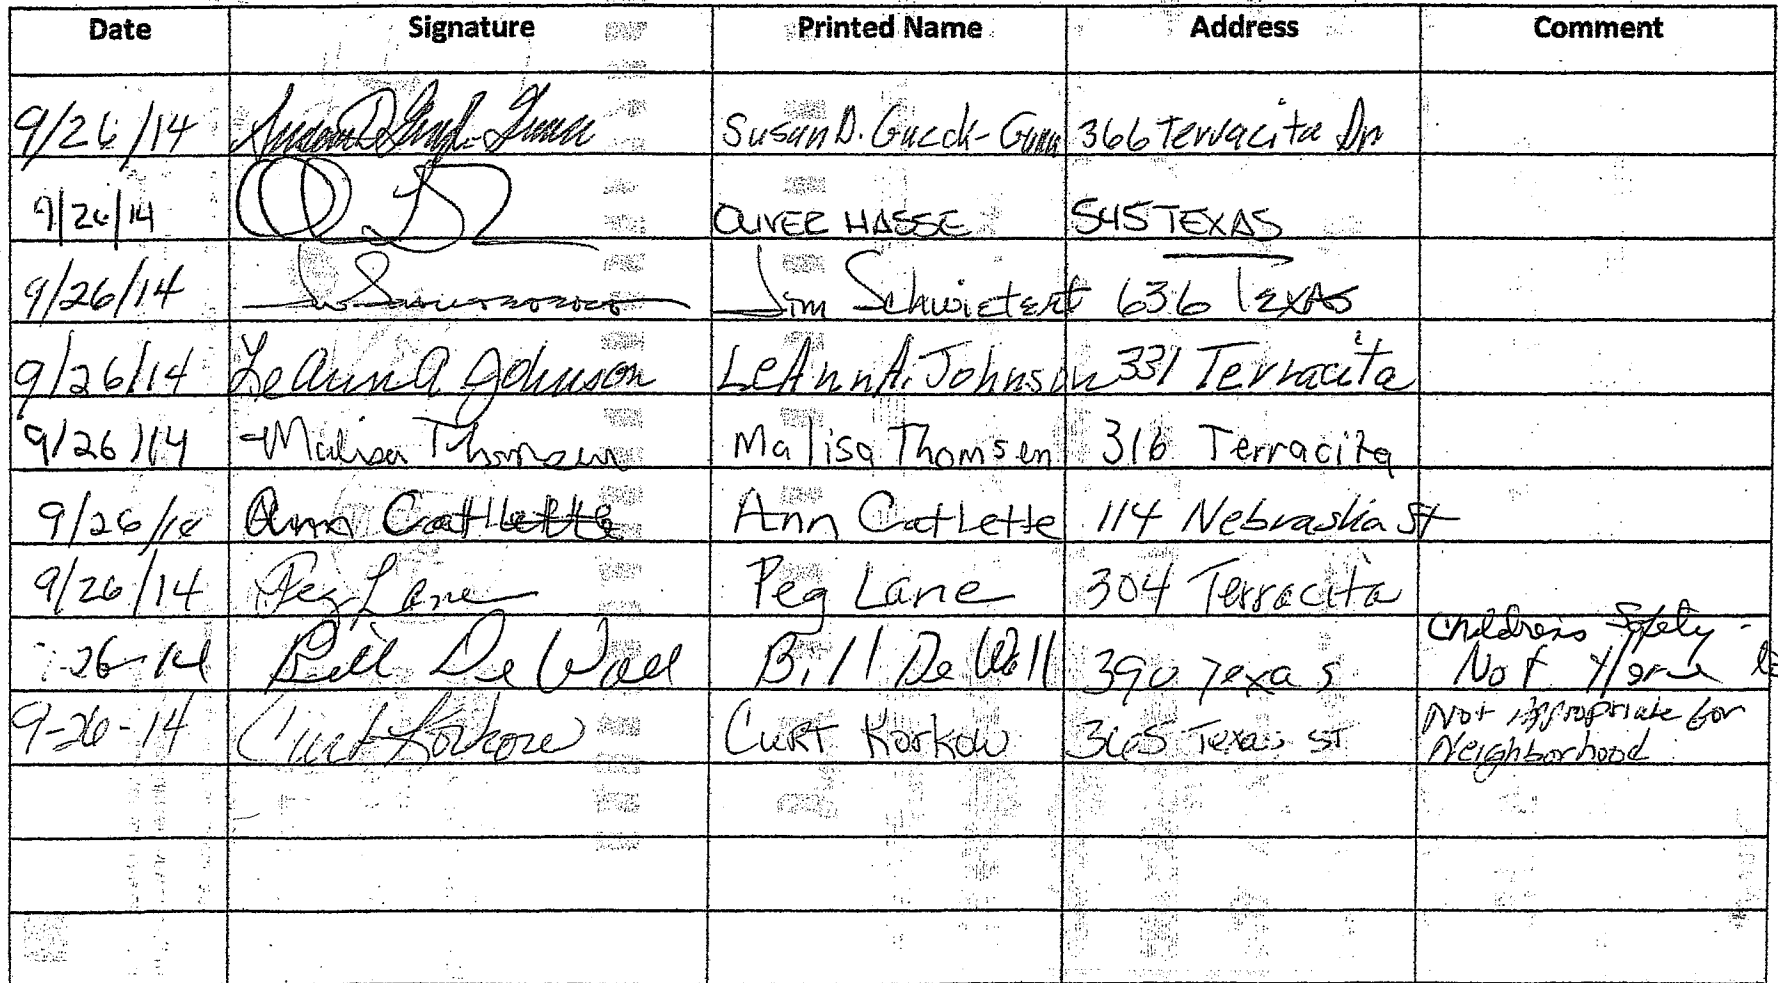 Date Signature Printed Name Address Comment
9/26/14 Susan D. 366 Terracita Dr
9/26/14 OLIVER HASSE 545 TEXAS
9/26/14 Jim Schwietert 636 TEXAS
9/26/14 LeAnn A Johnson LeAnn A. Johnson 331 Terracita
9/26/14 Malisa Thomsen Malisa Thomsen 316 Terracita
9/26/14 Ann Catlette Ann Catlette 114 Nebraska St
9/26/14 Peg Lane Peg Lane 304 Terracita
Childrens Safety -
26-14 Bill De Wall Bill De Wall 390 Texas Not
9-26-14 Curt Korkow CURT KorKow 365 Texas ST Not Appropriate for
Neighborhood